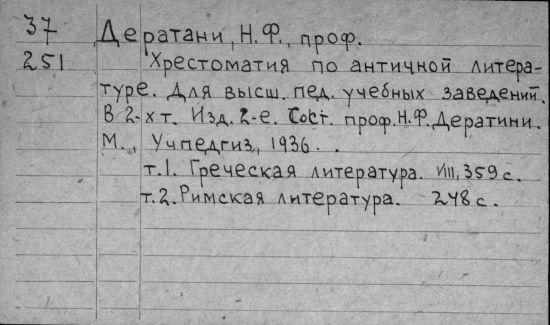 37 Дератани, Н.Ф., проф.
251 Хрестоматия по античной литера-
туре. Для высш. пед. учебных заведений.
В 2-х т. Изд. 2-е. Сост. проф. Н.Ф. Дератини.
М., Учпедгиз, 1936.
т.1. Греческая литература. VIII, 359 с.
т.2. Римская литература. 248 с.